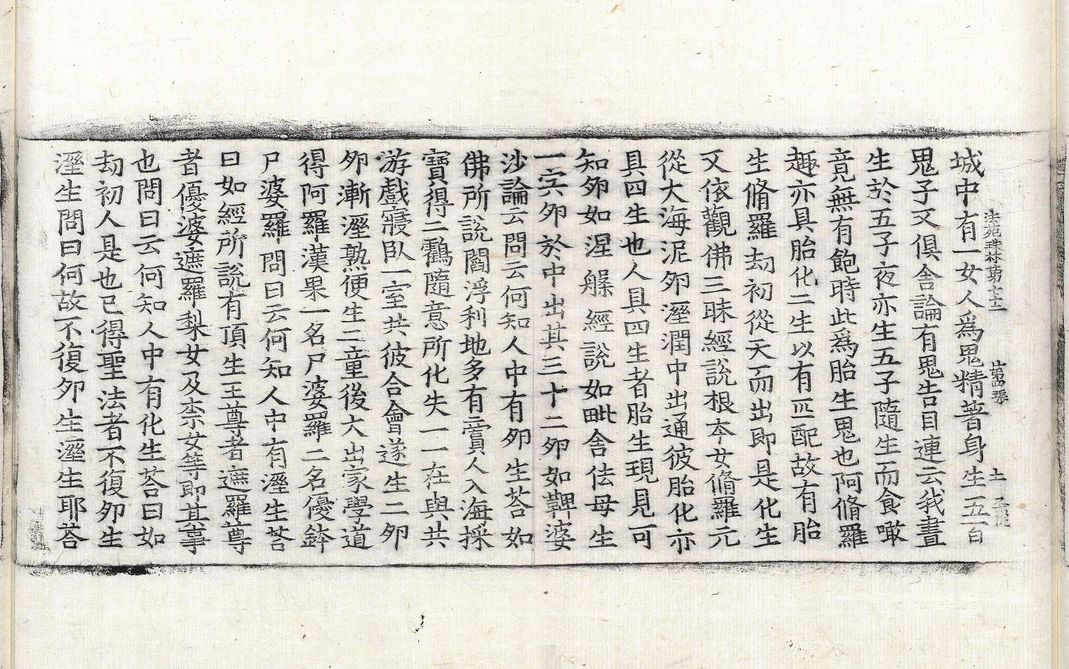 城中有一女人爲鬼精著身生五百
鬼子又俱舍論有鬼告目連云我晝
生於五子夜亦生五子隨生而食噉
竟無有飽時此爲胎生鬼也阿脩羅
趣亦具胎化二生以有匹配故有胎
生脩羅劫初從天而出即是化生
又依觀佛三昧經說根本女脩羅元
從大海泥卵溼潤中出通彼胎化亦
具四生也人具四生者胎生現見可
知卵如涅槃經說如毗舍佉母生
一宍卵於中出其三十二卵如鞞婆
沙論云問云何知人中有卵生荅如
佛所說閻浮利地多有賣人入海採
寶得二鶴隨意所化失一一在與共
游戲寢臥一室共彼合會遂生二卵
卵漸溼熟便生二童後大出家學道
得阿羅漢果一名尸婆羅二名優鉢
尸婆羅問曰云何知人中有溼生荅
曰如經所說有頂生王尊者遮羅尊
者優婆遮羅梨女及柰女等即其事
也問曰云何知人中有化生荅曰如
劫初人是也已得聖法者不復卵生
溼生問曰何故不復卵生溼生耶荅